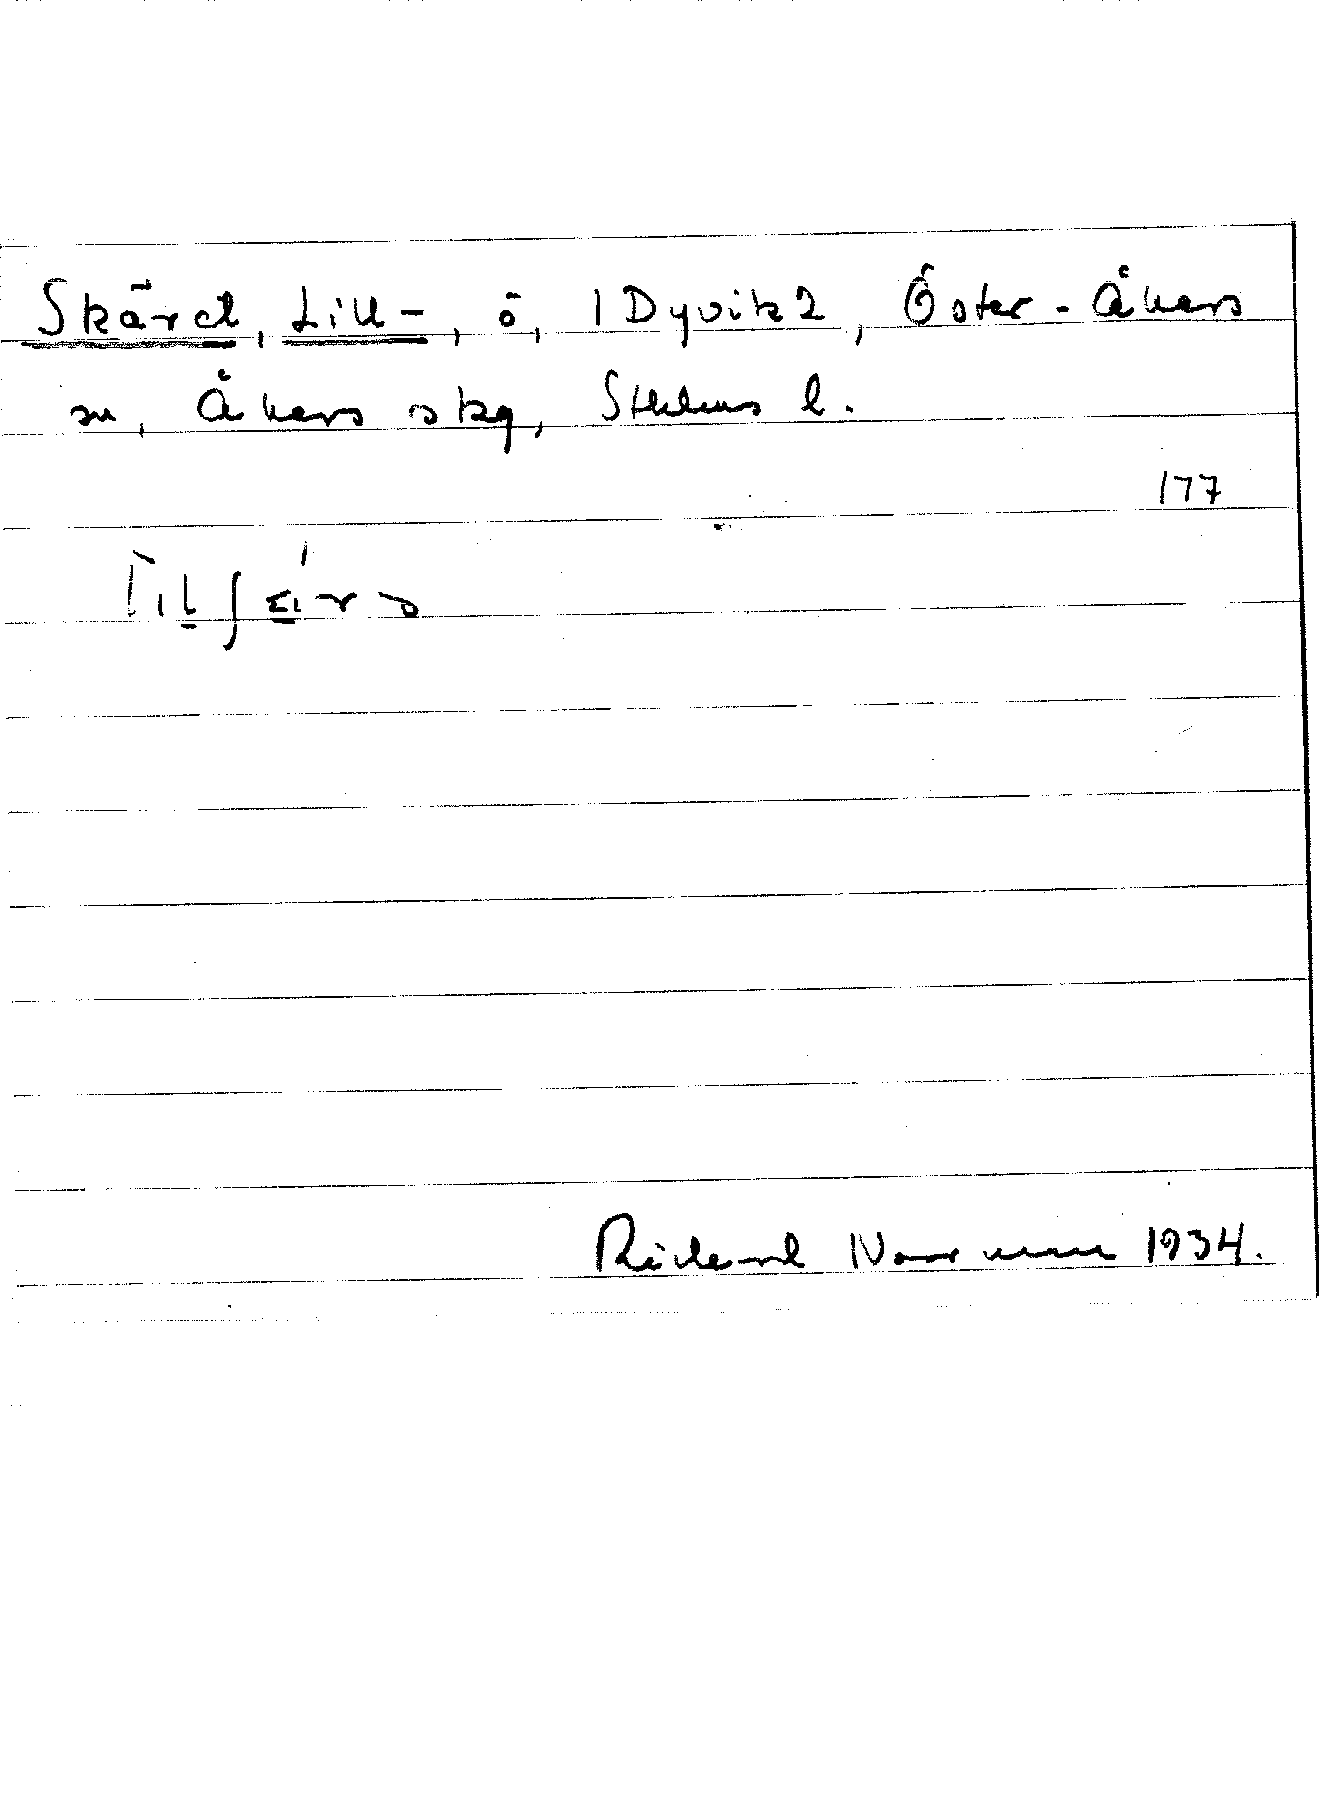 Skäret, Lill-, ö, 1 Dyvik 2, Öster-Åkers
sn, Åkers skg, Sthlms l.
177
Rickard Norrman 1934.